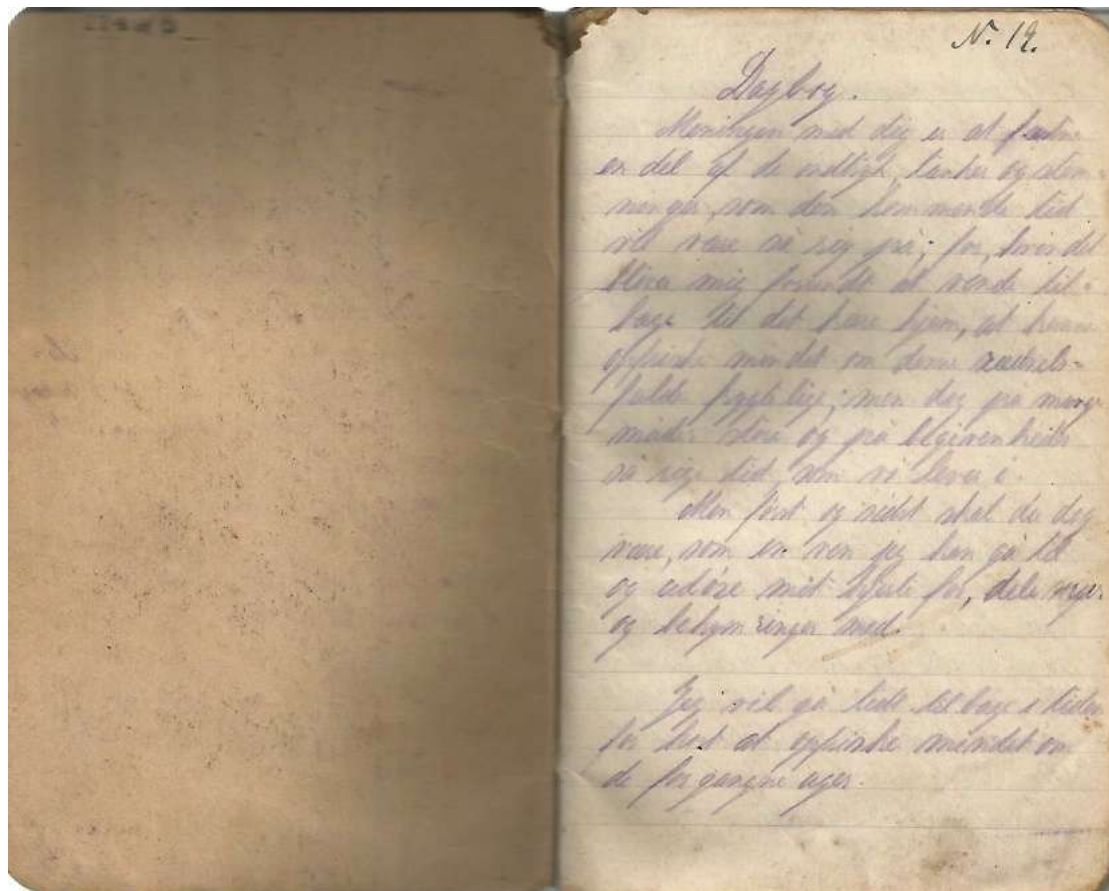 N. 19.
Dagbog.
Meningen med dig er at fæstne
en del af de indtryk, tanker og stem-
ninger, som den kommende tid
vil være så rig på; for, hvis det
bliver mig forundt at vende til-
bage til det kære hjem, at kunne
opfriske mindet om denne rædsels-
fulde frygtelige; men dog på mange
måder store og på begivenheder
så rige tid, som vi lever i.
Men først og sidst skal du dog
være, som en ven jeg kan gå til
og udøse mit hjerte for, dele sorger
og bekymringer med.
Jeg vil gå lidt tilbage i tiden
for kort at opfriske mindet om
de forgangne uger.